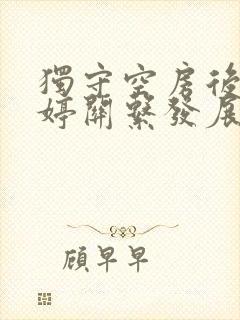 獨守空房後
婷關繫發展
顧早早